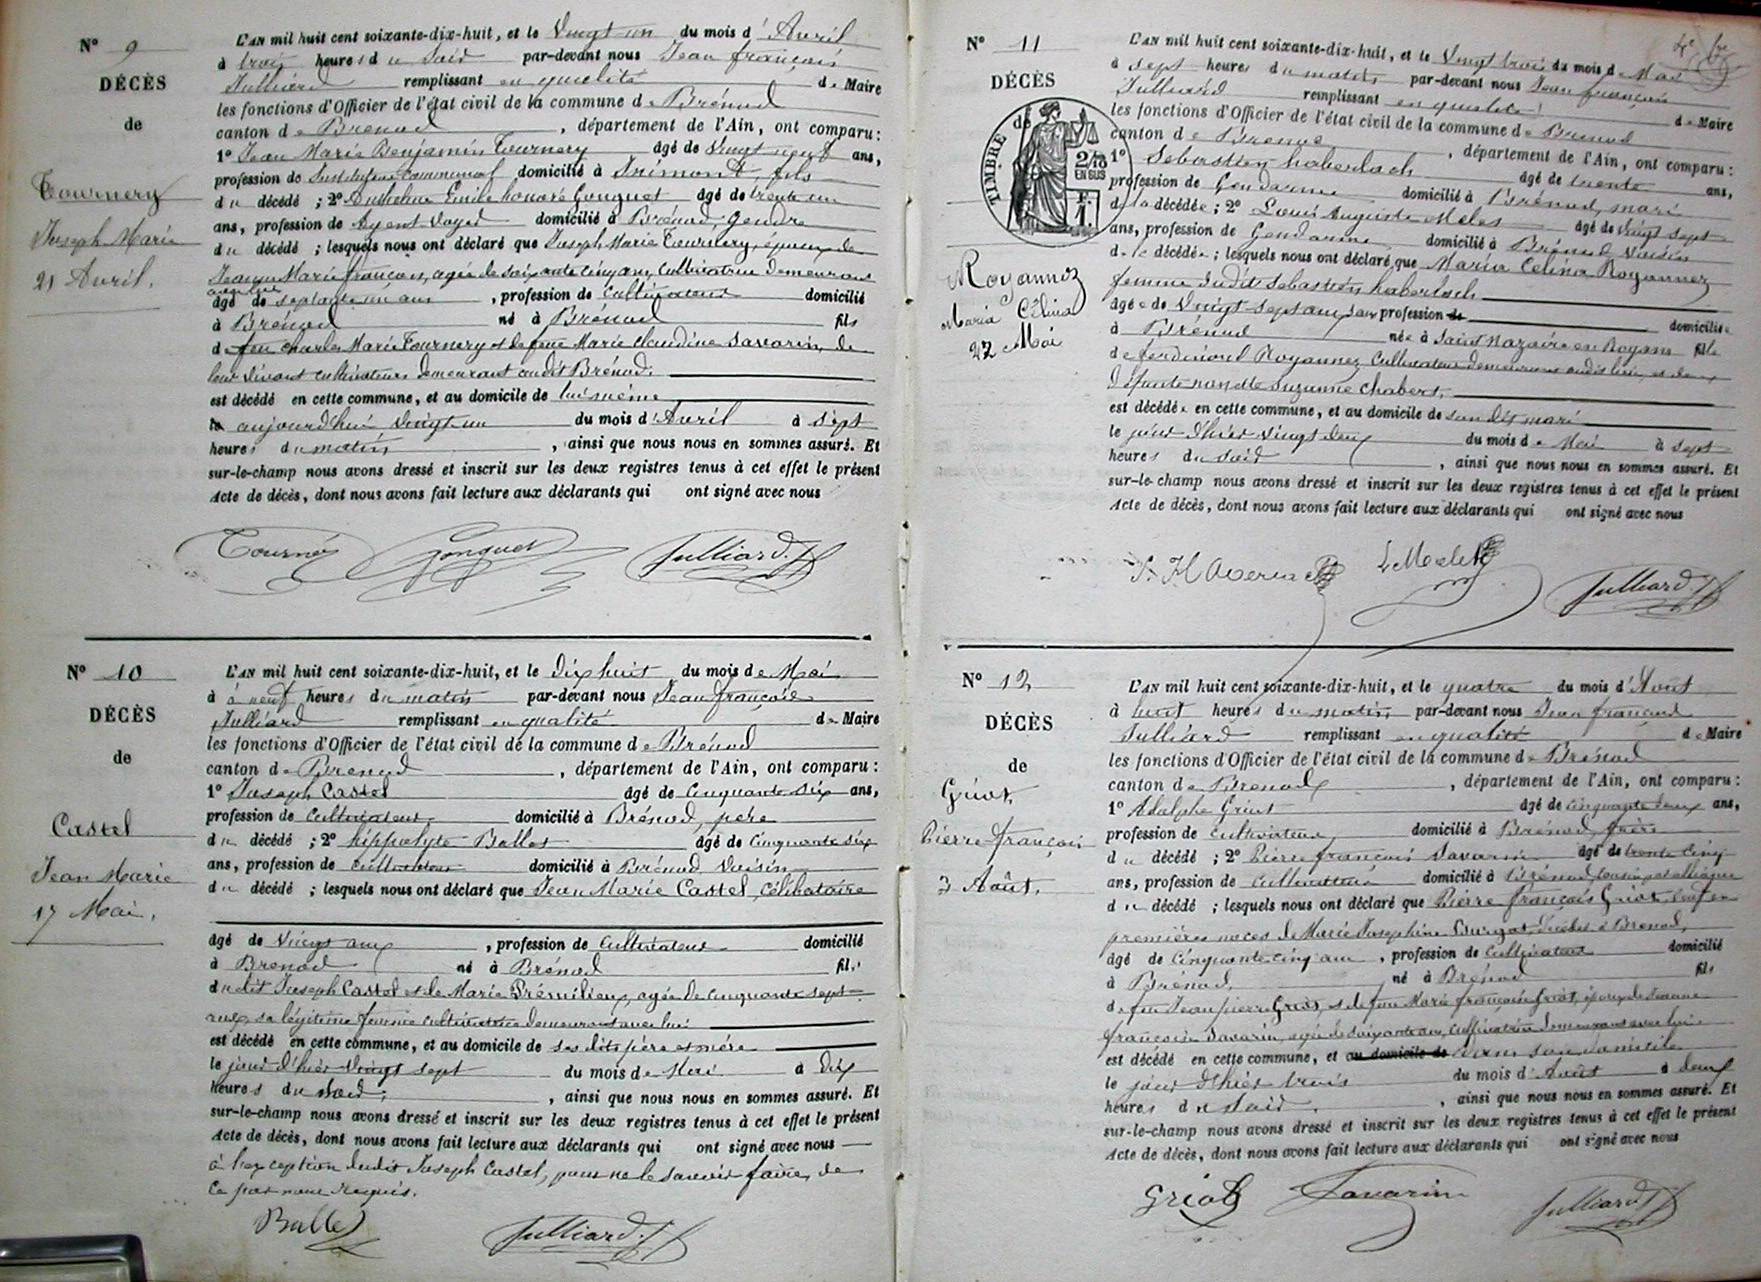 N° 9
DÉCÈS
de
Tournery
Joseph Marie
21 Avril.
L'AN mil huit cent soixante-dix-huit, et le Vingt un du mois d'Avril
à trois heures du Soir par-devant nous Jean françois
Julliard remplissant en qualité de Maire
les fonctions d'Officier de l'état civil de la commune de Brénod
canton de Brenod, département de l'Ain, ont comparu :
1° Jean Marie Benjamin Tournery âgé de vingt neuf ans,
profession de Instituteur Communal domicilié à Inimont, fils
du décédé ; 2° Emile honoré Gonguet âgé de trente un
ans, profession de Agent Voyer domicilié à Brénod, gendre
du décédé ; lesquels nous ont déclaré que Joseph Marie Tournery, époux de
Marie françois, agée de soixante cinq ans, Cultivatrice demeurant
avec lui
âgé de septante un ans, profession de Cultivateur domicilié
à Brénod né à Brénod fils
de feu Charles Marie Tournery et de feue Marie Claudine Savarin, de
leur vivant cultivateurs demeurant audit Brénod.
est décédé en cette commune, et au domicile de lui même
le aujourd'hui vingt un du mois d'Avril à sept
heures du matin, ainsi que nous nous en sommes assuré. Et
sur-le-champ nous avons dressé et inscrit sur les deux registres tenus à cet effet le présent
Acte de décès, dont nous avons fait lecture aux déclarants qui ont signé avec nous
Gonguet Julliard
N° 10
DÉCÈS
de
Castel
Jean Marie
17 Mai.
L'AN mil huit cent soixante-dix-huit, et le Dix huit du mois de Mai
à à neuf heures du matin par-devant nous Jean françois
Julliard remplissant en qualité de Maire
les fonctions d'Officier de l'état civil de la commune de Brénod
canton de Brenod, département de l'Ain, ont comparu :
1° Joseph Castel âgé de Cinquante six ans,
profession de Cultivateur domicilié à Brénod, père
du décédé ; 2° hippolyte Ballet âgé de Cinquante six
ans, profession de Cultivateur domicilié à Brénod, Voisin
du décédé ; lesquels nous ont déclaré que Jean Marie Castel, Célibataire
âgé de Vingt ans, profession de Cultivateur domicilié
à Brenod né à Brénod fils
dudit Joseph Castel et de Marie Prémilieu, agée de Cinquante sept
ans, sa légitime femme cultivatrice demeurant avec lui
est décédé en cette commune, et au domicile de ses dits père et mère
le jour d'hier Vingt sept du mois de Mai à Dix
heures du soir, ainsi que nous nous en sommes assuré. Et
sur-le-champ nous avons dressé et inscrit sur les deux registres tenus à cet effet le présent
Acte de décès, dont nous avons fait lecture aux déclarants qui ont signé avec nous
à l'exception dudit Joseph Castel, pour ne le savoir faire, de
ce par nous requis.
Ballet Julliard
N° 11
DÉCÈS
de
TIMBRE
2/10 EN SUS
F. 1.
Royannez
Maria Célina
22 Mai
L'AN mil huit cent soixante-dix-huit, et le Vingt trois du mois de Mai
à sept heures du matin par-devant nous Jean françois
Julliard remplissant en qualité de Maire
les fonctions d'Officier de l'état civil de la commune de Brenod
canton de Brenod, département de l'Ain, ont comparu :
1° Sebastien haberlach âgé de trente ans,
profession de Gendarme domicilié à Brénod, mari
de la décédée ; 2° Louis Auguste Melet âgé de Vingt sept
ans, profession de Gendarme domicilié à Brénod, Voisin
de la décédée ; lesquels nous ont déclaré que Maria Celina Royannez
femme dudit Sebastien haberlach
âgée de Vingt sept ans, sans profession de domiciliée
à Brénod née à Saint Nazaire en Royans fille
de ferdinand Royannez, Cultivateur demeurant audit lieu, et de
Défunte nanette Suzanne Chabert,
est décédée en cette commune, et au domicile de son dit mari
le jour d'hier vingt deux du mois de Mai à sept
heures du soir, ainsi que nous nous en sommes assuré. Et
sur-le-champ nous avons dressé et inscrit sur les deux registres tenus à cet effet le présent
Acte de décès, dont nous avons fait lecture aux déclarants qui ont signé avec nous
Julliard
N° 12
DÉCÈS
de
Griot
Pierre françois
3 Août.
L'AN mil huit cent soixante-dix-huit, et le quatre du mois d'Août
à huit heures du matin, par-devant nous Jean françois
Julliard remplissant en qualité de Maire
les fonctions d'Officier de l'état civil de la commune de Brénod
canton de Brenod, département de l'Ain, ont comparu :
1° Adolphe Griot âgé de cinquante deux ans,
profession de cultivateur domicilié à Brénod, frère
du décédé ; 2° Pierre françois Savarin âgé de trente cinq
ans, profession de cultivateur domicilié à Brénod,
du décédé ; lesquels nous ont déclaré que Pierre françois Griot, veuf en
premières noces de Marie Josephine décédée à Brenod,
âgé de Cinquante cinq ans, profession de Cultivateur domicilié
à Brénod, né à Brénod fils
de feu Jean pierre Griot, et de feue Marie françoise Griot, époux de
françoise Savarin, agée de soixante ans, Cultivatrice demeurant avec lui
est décédé en cette commune, et au domicile de dans son domicile
le jour d'hier trois du mois d'Août à deux
heures du soir, ainsi que nous nous en sommes assuré. Et
sur-le-champ nous avons dressé et inscrit sur les deux registres tenus à cet effet le présent
Acte de décès, dont nous avons fait lecture aux déclarants qui ont signé avec nous
Griot Savarin Julliard